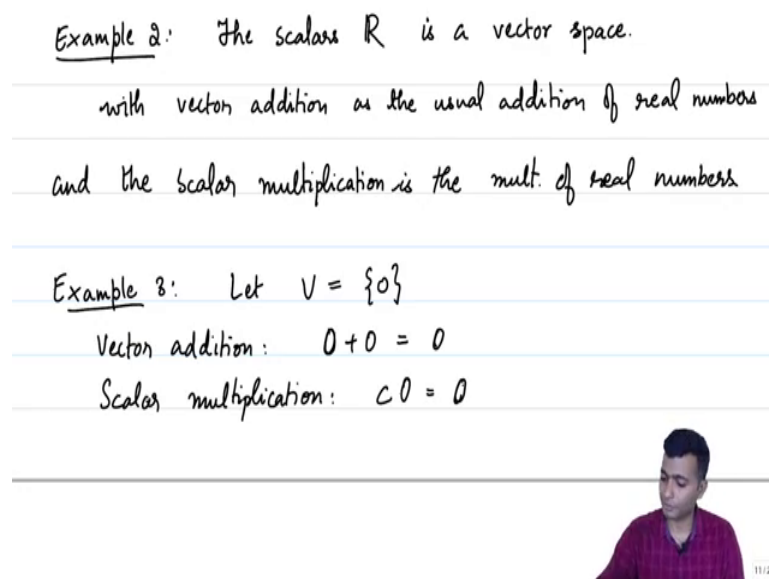 Example 2: The scalars R is a vector space.
with vector addition as the usual addition of real numbers
and the scalar multiplication is the mult. of real numbers
Example 3: Let V = {0}
Vector addition: 0+0 = 0
Scalar multiplication: c0 = 0